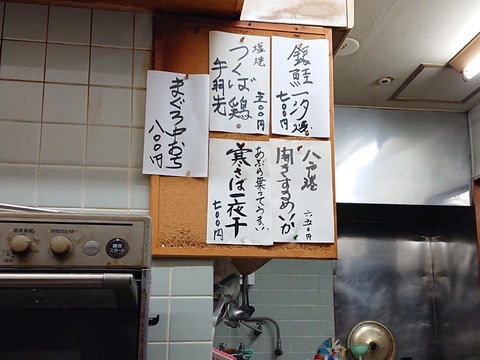 銀鮭一汐焼
七〇〇円
塩焼
つくば鶏
手羽先
五〇〇円
まぐろ中おち
八〇〇円
八戸港
開きするめいか
六五〇円
あぶら乗っててうまい
寒さば一夜干
七〇〇円